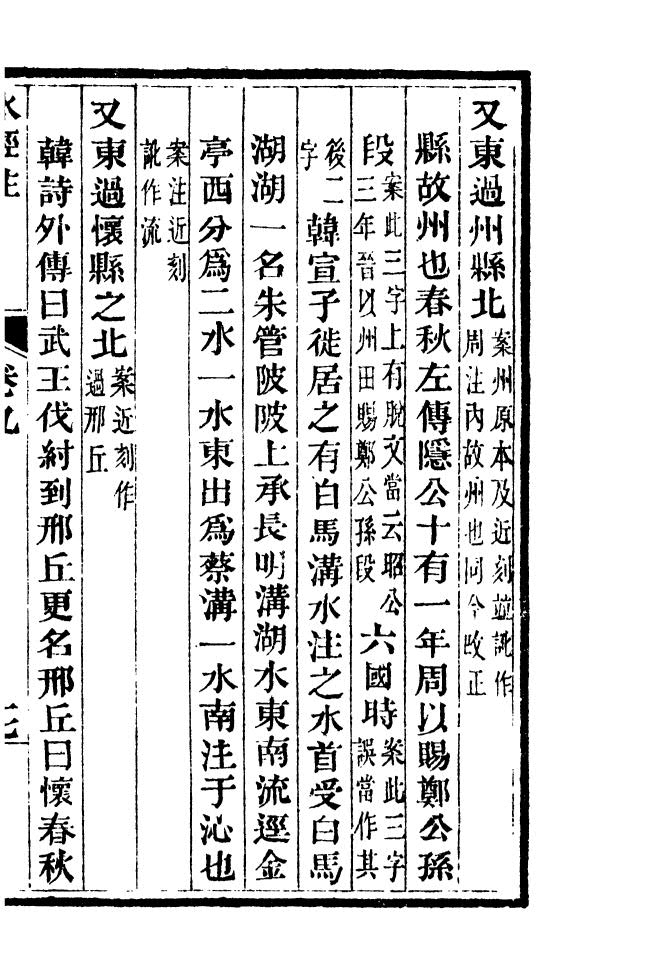 又東過州縣北案州原本及近刻並訛作周注內故州也同今改正
縣故州也春秋左傳隱公十有一年周以賜鄭公孫
段案此三字上有脫文當云昭公三年晉以州田賜鄭公孫段六國時案此三字誤當作其
後二字韓宣子徙居之有白馬溝水注之水首受白馬
湖湖一名朱管陂陂上承長明溝湖水東南流逕金
亭西分爲二水一水東出爲蔡溝一水南注于沁也
案注近刻訛作流
又東過懷縣之北案近刻作過邢丘
韓詩外傳曰武王伐紂到邢丘更名邢丘曰懷春秋
水經注 卷九